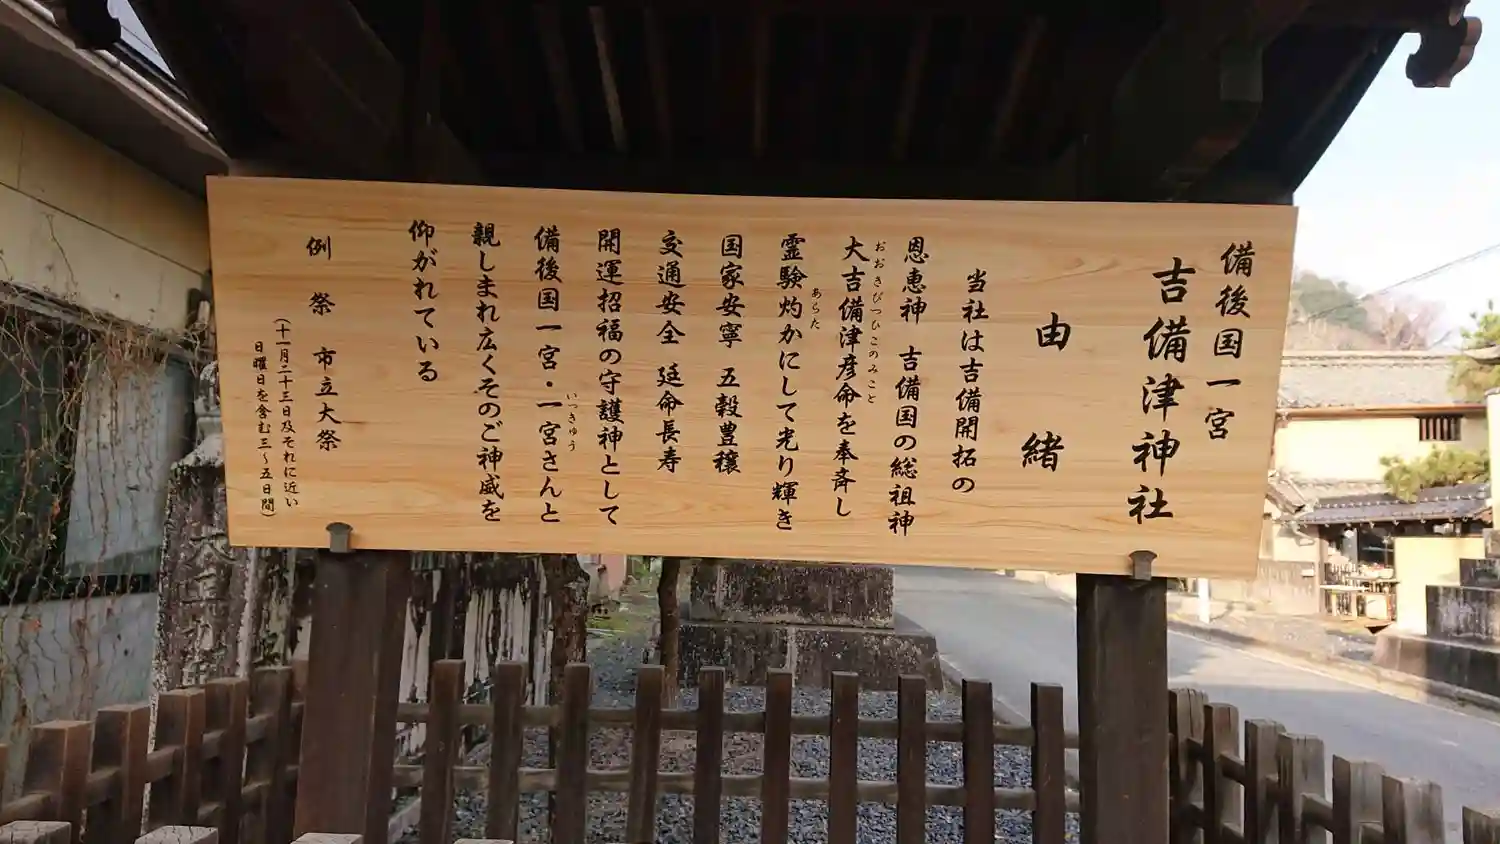 備後国一宮
吉備津神社
由緒
当社は吉備開拓の
恩恵神 吉備国の総祖神
大吉備津彦命を奉斎し
おおきびつひこのみこと
霊験灼かにして光り輝き
あらた
国家安寧 五穀豊穣
交通安全 延命長寿
開運招福の守護神として
備後国一宮・一宮さんと
いっきゅう
親しまれ広くそのご神威を
仰がれている
例祭 市立大祭
（十一月二十三日及それに近い
日曜日を含む三～五日間）